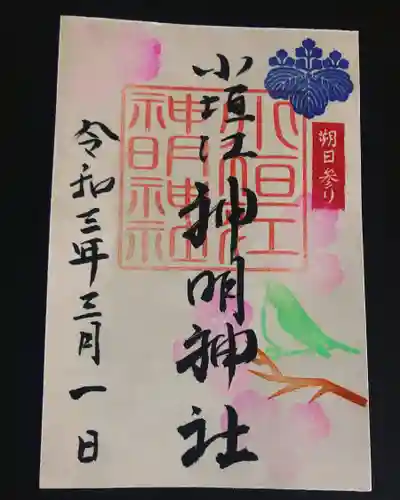 朔日参り
小垣江神明神社
小垣江
神明神社
令和三年三月一日